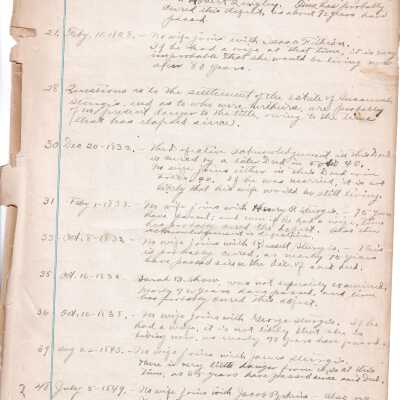 Robert Kingsley. Time has probably
cured this defect, as about 92 years have
passed.
26 Feby. 11. 1823. - No wife joins with Isaac
If he had a wife at that time, it is very
improbable that she would be living now
after 80 years.
28 Questions as to the settlement of the estate of Susannah
Sturgis, and as to who were her heirs, are probably
of no present danger to the title, owing to the time
that has elapsed since.
30 Dec 20-1832. - The of acknowledgment in this Deed
is cured by a later Deed in 508 48.
No wife joins either in this Deed or in
If he was married, it is not
likely that his wife would be still living.
31 Feby 1-1833 - No wife joins with Henry R. Sturgis. - 70 years
have passed; and even if he had a wife, time
has probably cured the defect. Also the
acknowledgment is
33 Oct. 8-1832 - No wife joins with Russell Sturgis. - This
is probably cured, as nearly 70 years
have passed since the date of said deed.
35 Oct. 16-1830. - Sarah B. Shaw was not separately examined,
nearly 72 years have passed, and time
has probably cured this defect.
36 Oct. 16-1835. - No wife joins with George Sturgis. If he
had a wife, it is not likely that she is
living now, as nearly 70 years have passed.
39 Aug 22-1843. - No wife joins with James Sturgis.
There is very little danger from it, at this
time, as 60 years have passed since said Deed.
48 July 5-1849. - No wife joins with Jacob Perkins - Also, no